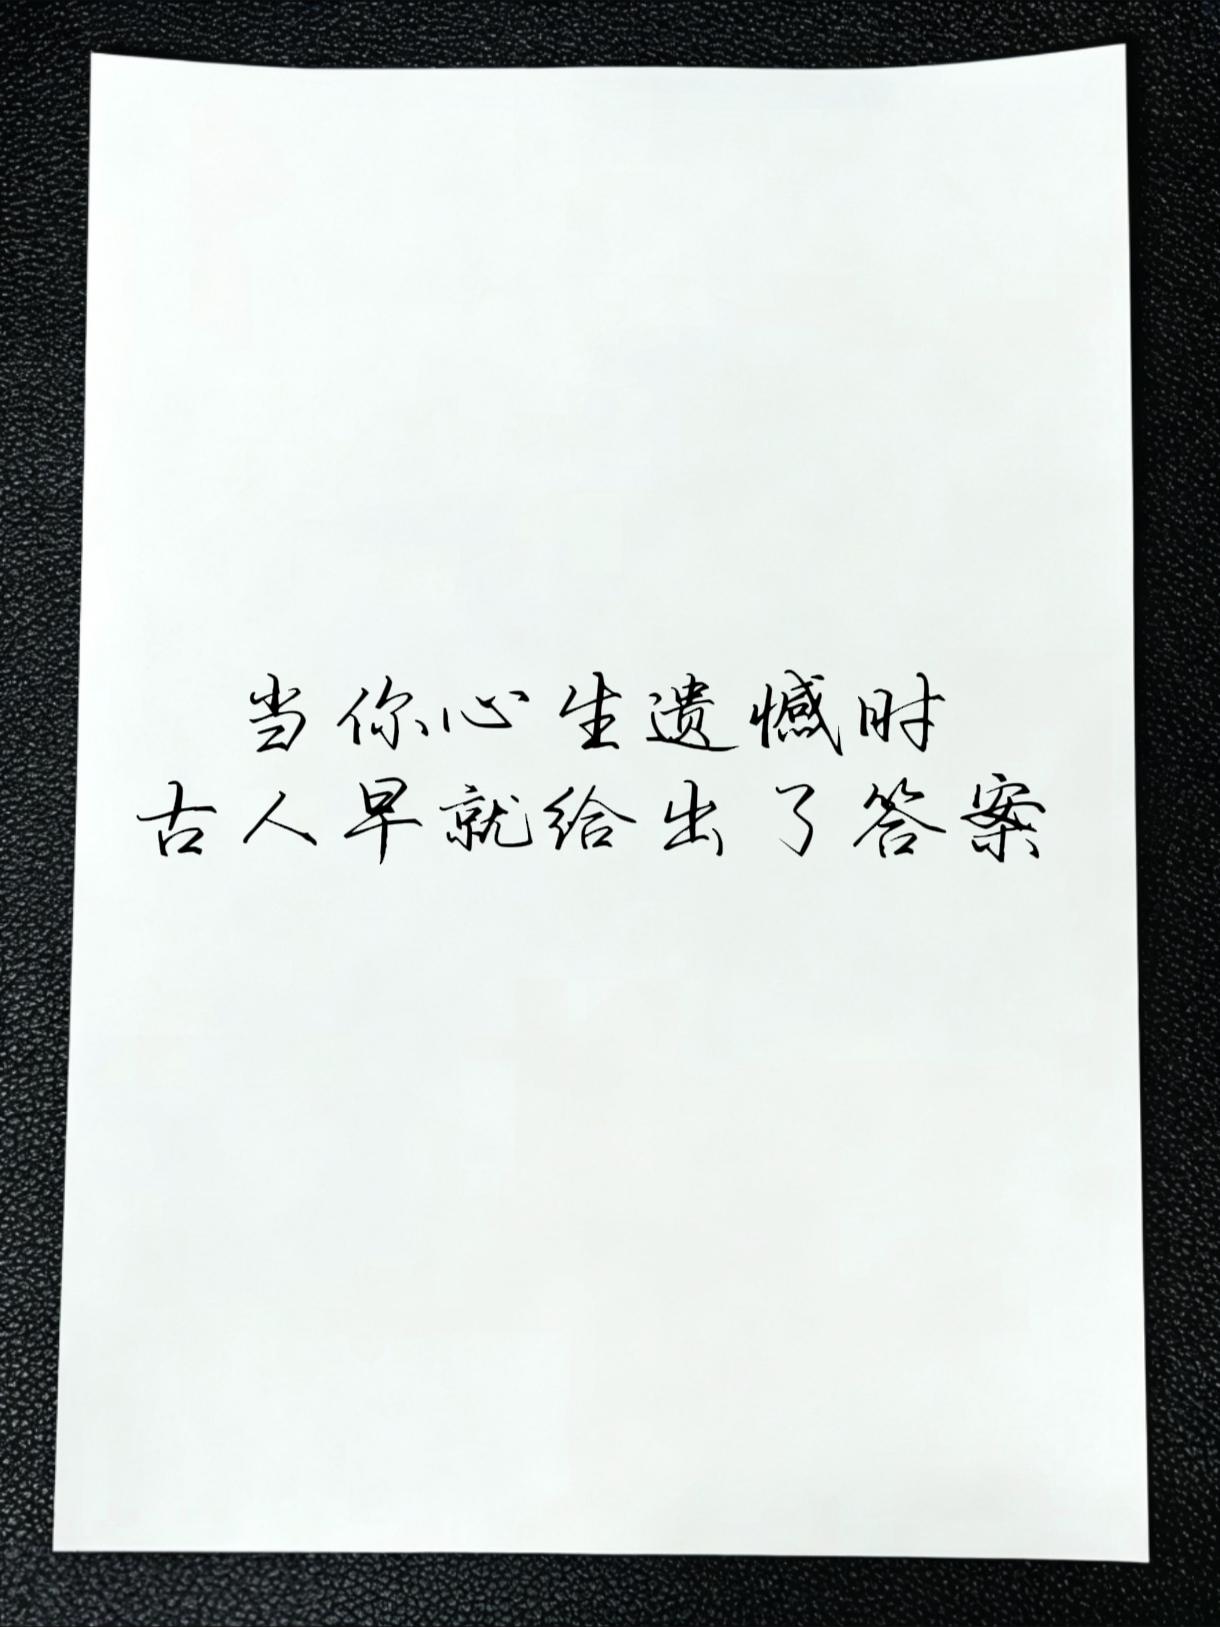 当你心生遗憾时
古人早就给出了答案